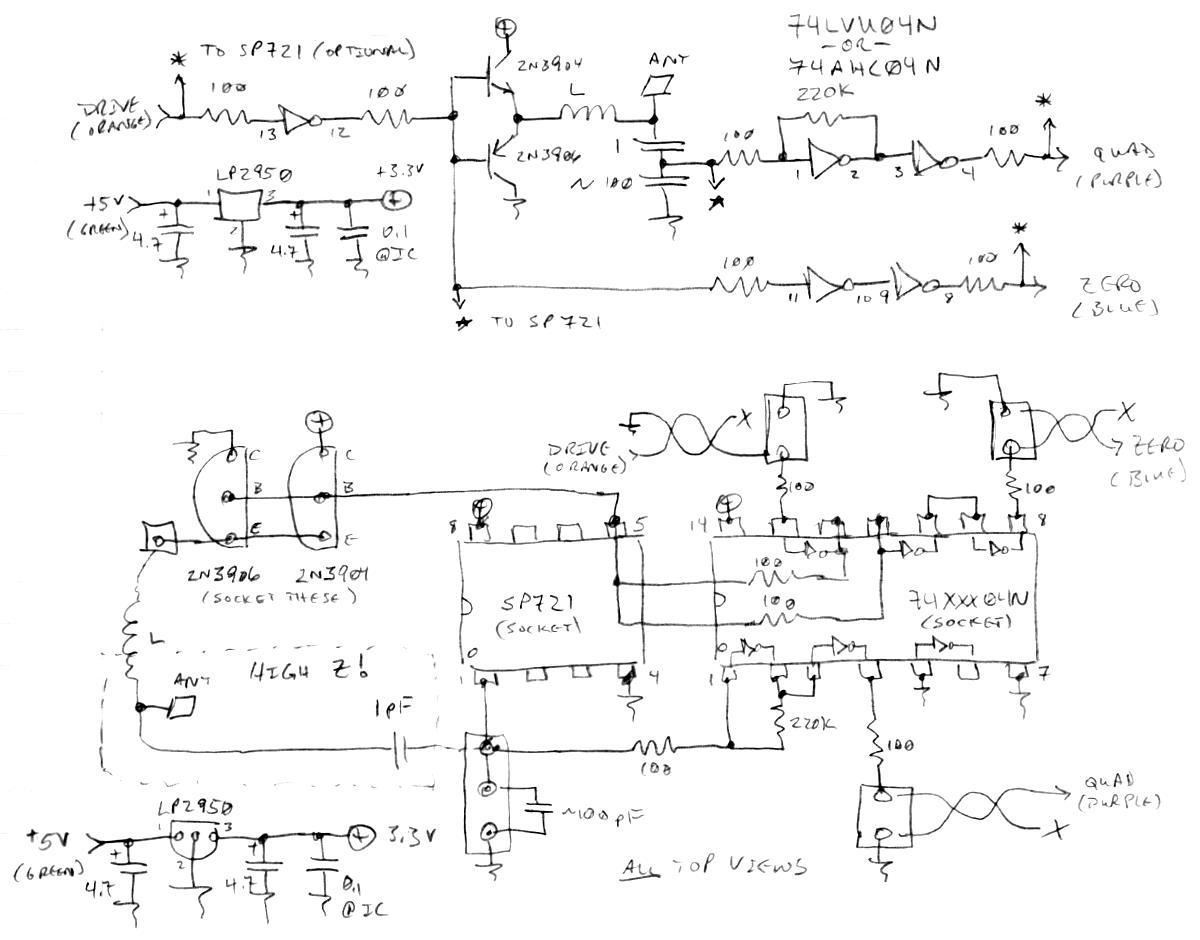 74LVU04N
-OR-
74AHC04N
* TO SP721 (OPTIONAL)
+
2N3904
ANT
220K
DRIVE
(ORANGE)
100
13
12
100
L
1
100
1
2
3
4
100
*
QUAD
(PURPLE)
2N3906
~100
*
LP2950
+3.3V
+5V
(GREEN)
1
3
2
+
4.7
+
4.7
+
0.1
@IC
* TO SP721
100
11
10
9
8
100
*
ZERO
(BLUE)
+
C
C
B
B
E
E
2N3906
2N3904
(SOCKET THESE)
DRIVE
(ORANGE)
X
100
X
ZERO
(BLUE)
100
+
8
5
+
14
8
SP721
(SOCKET)
100
100
74XXX04N
(SOCKET)
1
4
1
7
L
HIGH Z!
ANT
1pF
220K
100
100
~100pF
QUAD
(PURPLE)
X
LP2950
+5V
(GREEN)
1
3
2
+
4.7
+
4.7
+
3.3V
0.1
@IC
ALL TOP VIEWS